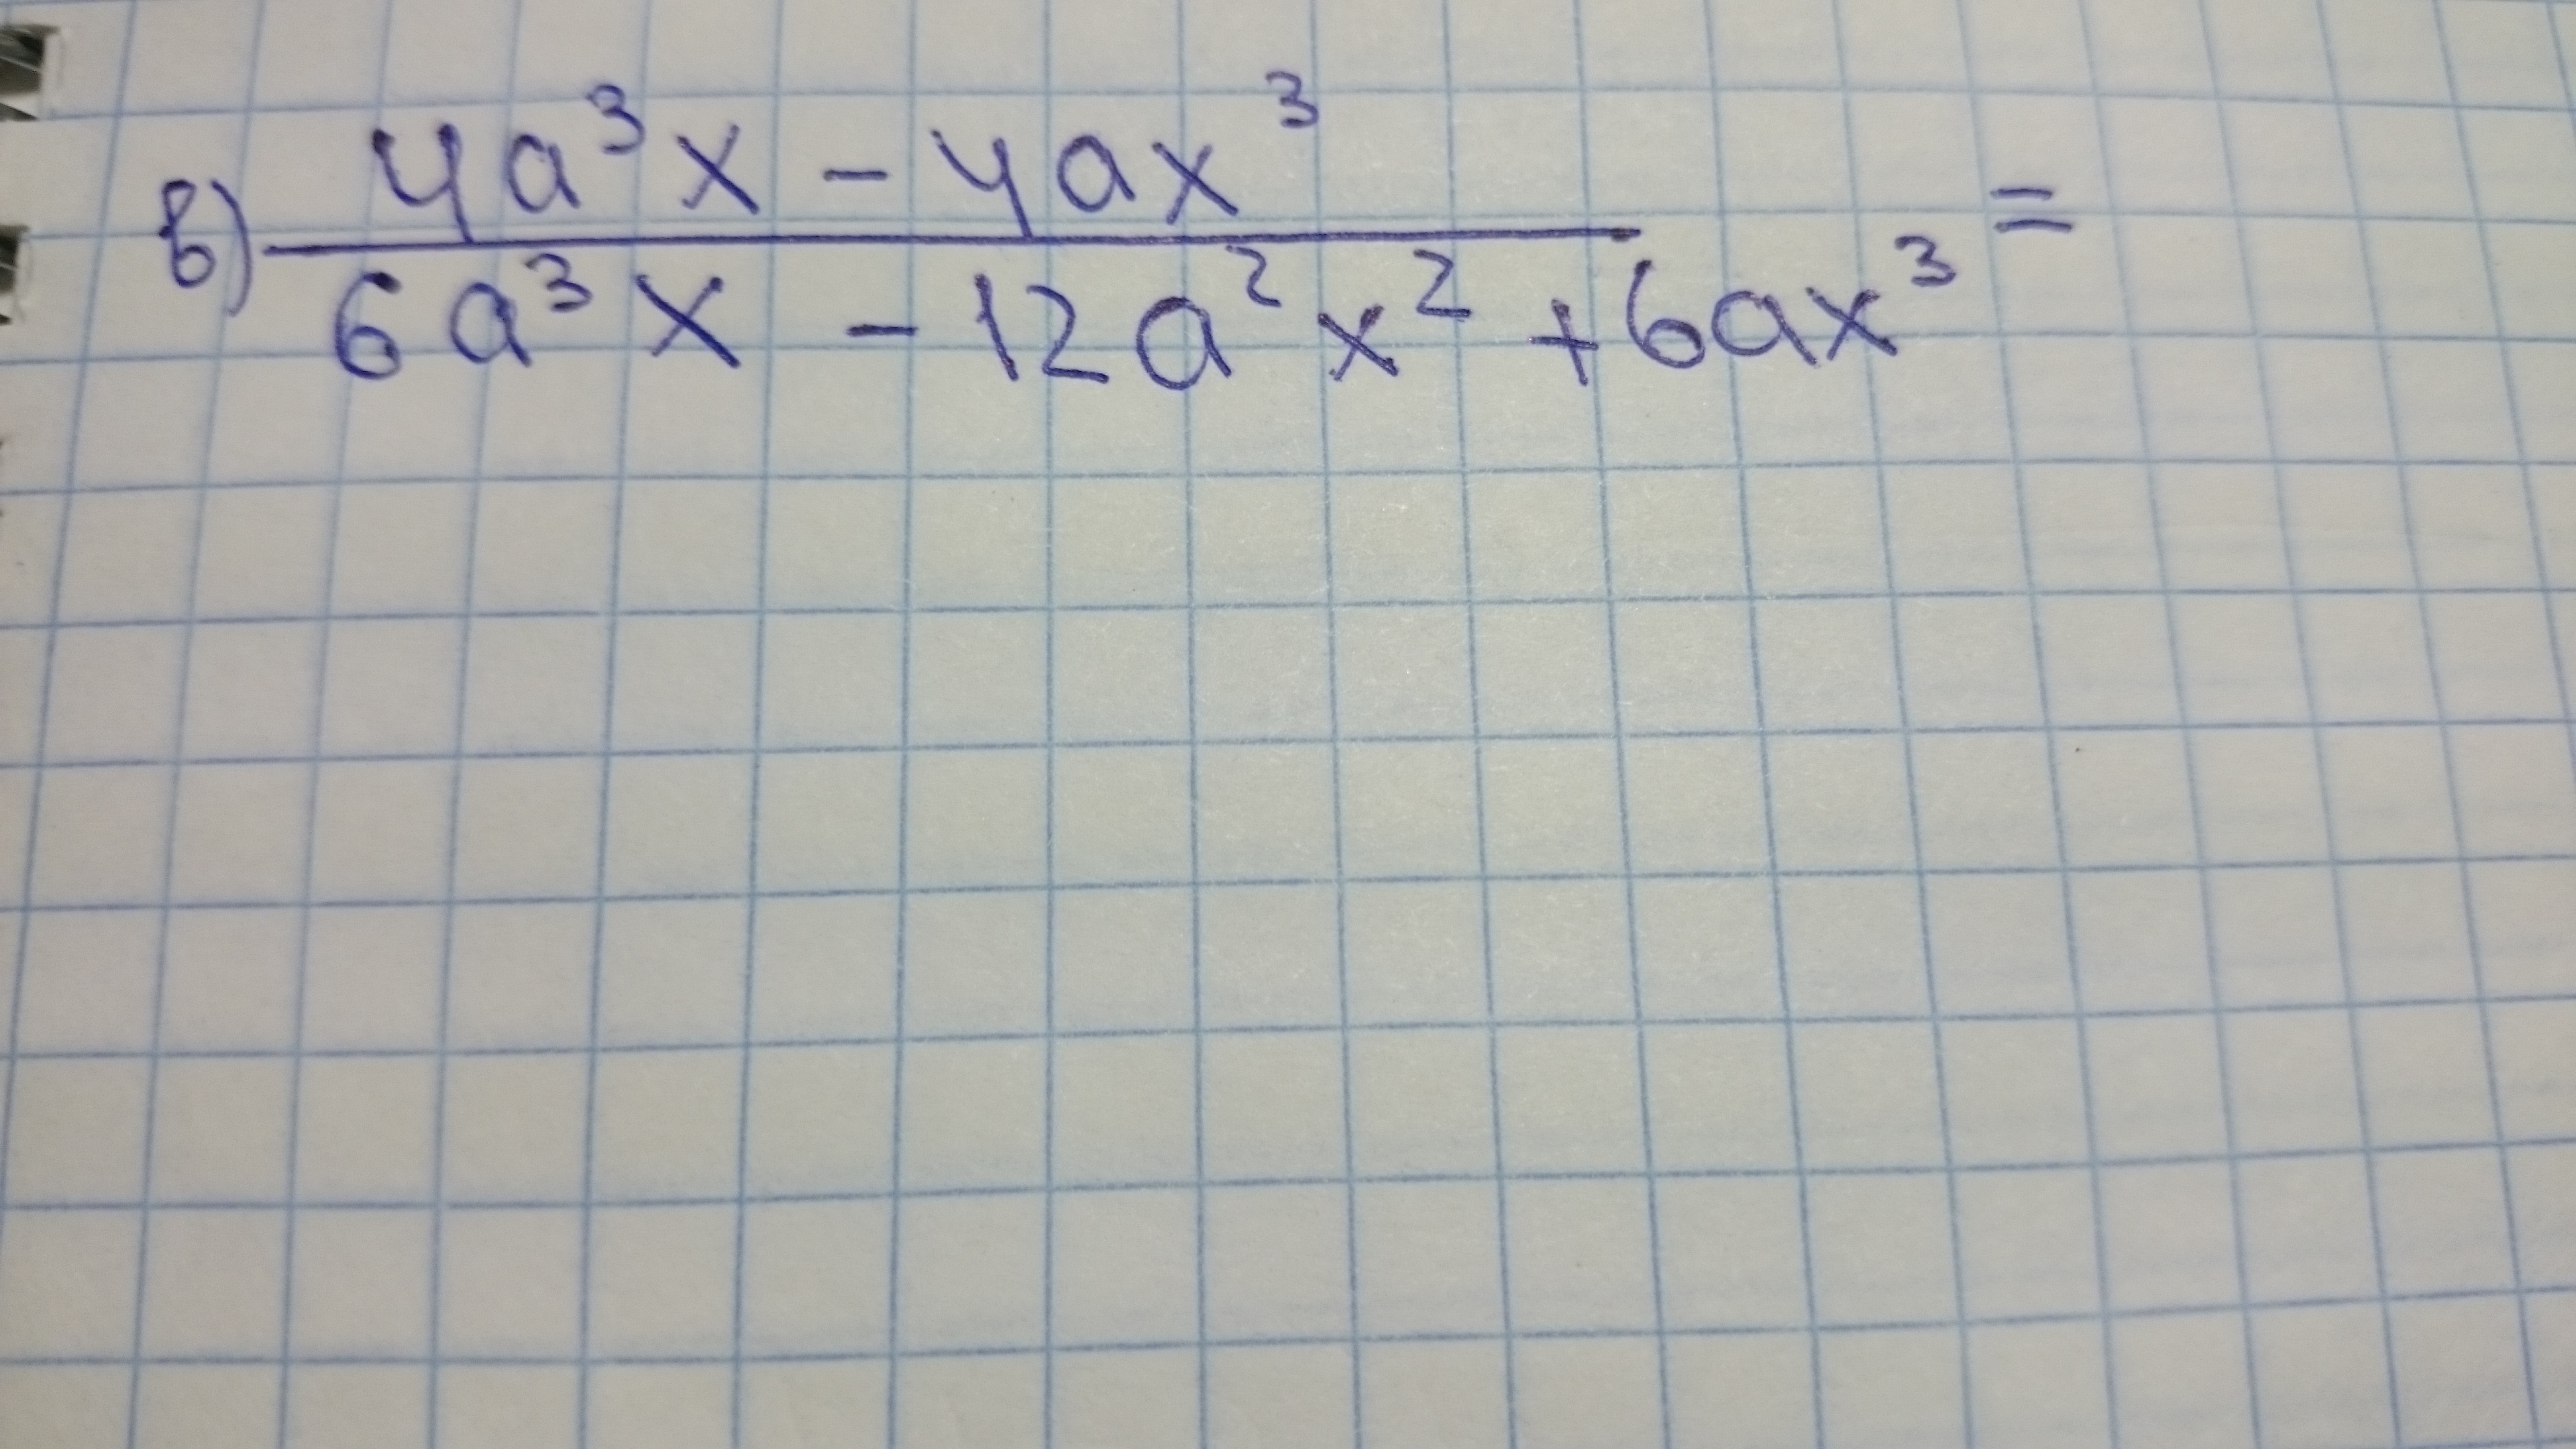 в) (4a³x - 4ax³) / (6a³x - 12a²x² + 6ax³) =